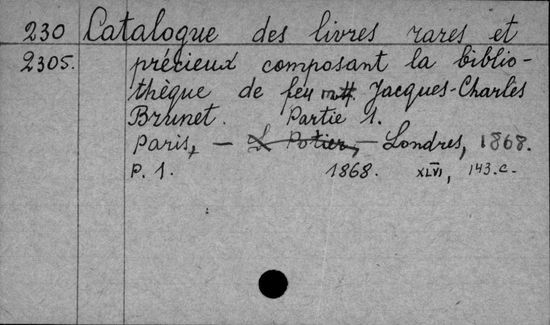 230 Catalogue des livres rares et
2305. précieux composant la biblio-
thèque de feu mtt. Jacques-Charles
Brunet. Partie 1.
Paris, — L Potier, — Londres, 1868.
P. 1. 1868. XLVI, 143.c.